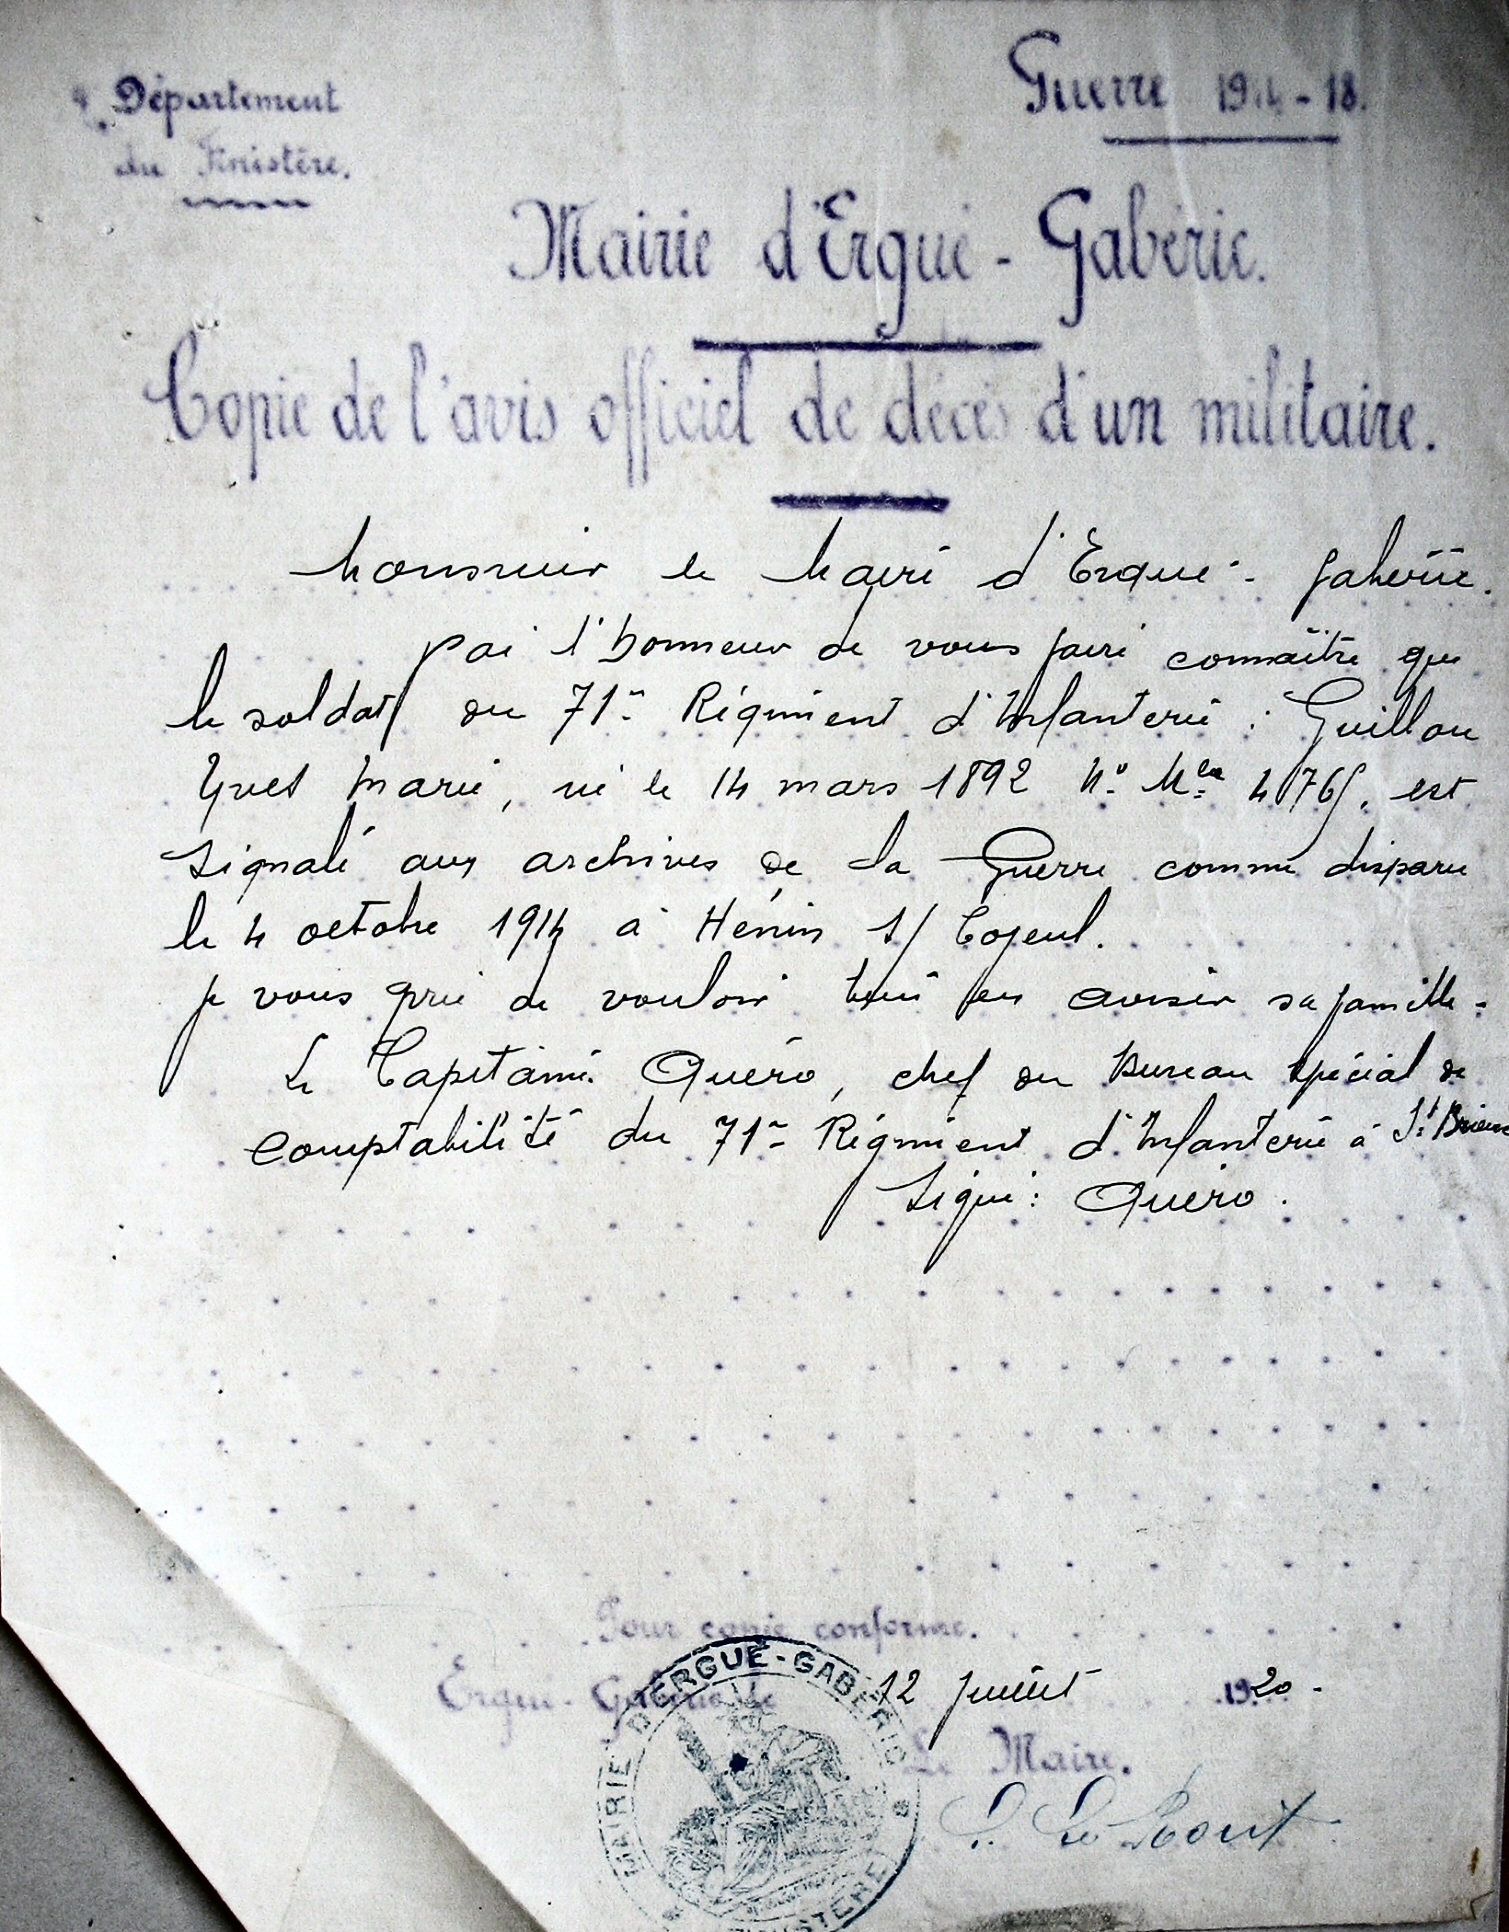 Département
du Finistère.
Guerre 1914-18.
Mairie d'Ergué-Gabéric.
Copie de l'avis officiel de décès d'un militaire.
Monsieur le Maire d'Ergué-Gabéric.
J'ai l'honneur de vous faire connaître que
le soldat du 71e Régiment d'Infanterie : Guillou
Yves Marie, né le 14 mars 1892 No Mle 4765, est
signalé aux archives de la Guerre comme disparu
le 4 octobre 1914 à Hénin s/ Cojeul.
Je vous prie de vouloir bien en aviser sa famille.
Le Capitaine Quéro, chef du Bureau spécial de
comptabilité du 71e Régiment d'Infanterie à St Brieuc
Signé : Quéro.
Pour copie conforme.
Ergué-Gabéric le 12 juillet 1920.
Le Maire.
MAIRIE D'ERGUÉ-GABÉRIC
FINISTÈRE